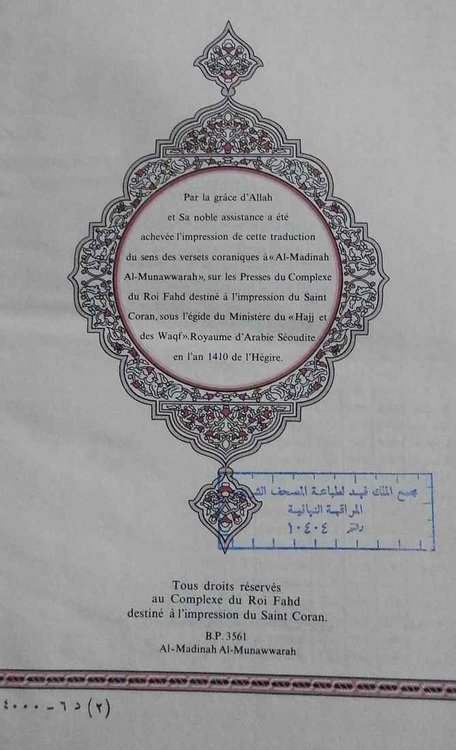 Par la grâce d'Allah
et Sa noble assistance a été
achevée l'impression de cette traduction
du sens des versets coraniques à «Al-Madinah
Al-Munawwarah», sur les Presses du Complexe
du Roi Fahd destiné à l'impression du Saint
Coran, sous l'égide du Ministère du «Hajj et
des Waqf». Royaume d'Arabie Séoudite
en l'an 1410 de l'Hégire.
مجمع الملك فهد لطباعة المصحف
المراقبة النهائية
١٠٤٠٤
Tous droits réservés
au Complexe du Roi Fahd
destiné à l'impression du Saint Coran.
B.P. 3561
Al-Madinah Al-Munawwarah
(٢) د ٦ - ٤٠٠٠